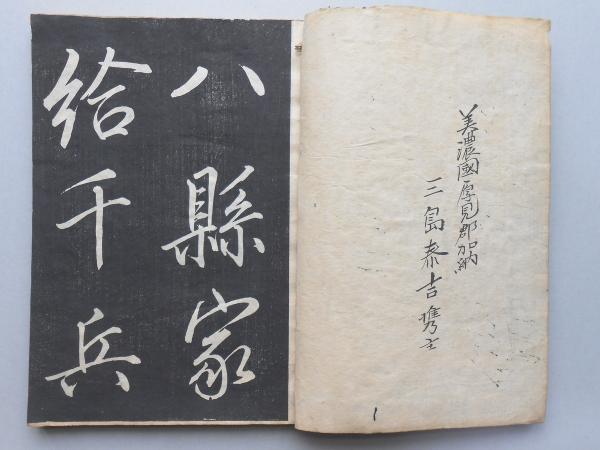 美濃國厚見郡加納
三島泰吉携主
八縣家
給千兵